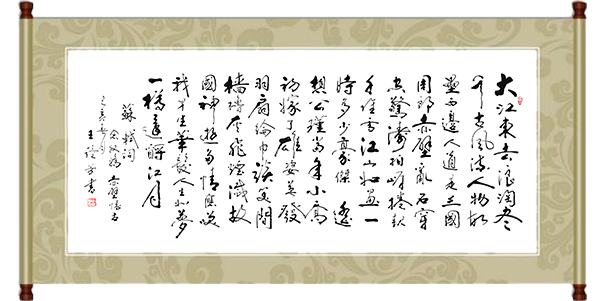 大江東去浪淘盡
千古風流人物故
壘西邊人道是三國
周郎赤壁亂石穿
空驚濤拍岸捲起
千堆雪江山如畫一
時多少豪傑 遙
想公瑾當年小喬
初嫁了雄姿英發
羽扇綸巾談笑間
檣櫓灰飛煙滅故
國神遊多情應笑
我早生華髮人生如夢
一樽還酹江月
蘇軾詞
念奴嬌 赤壁懷古